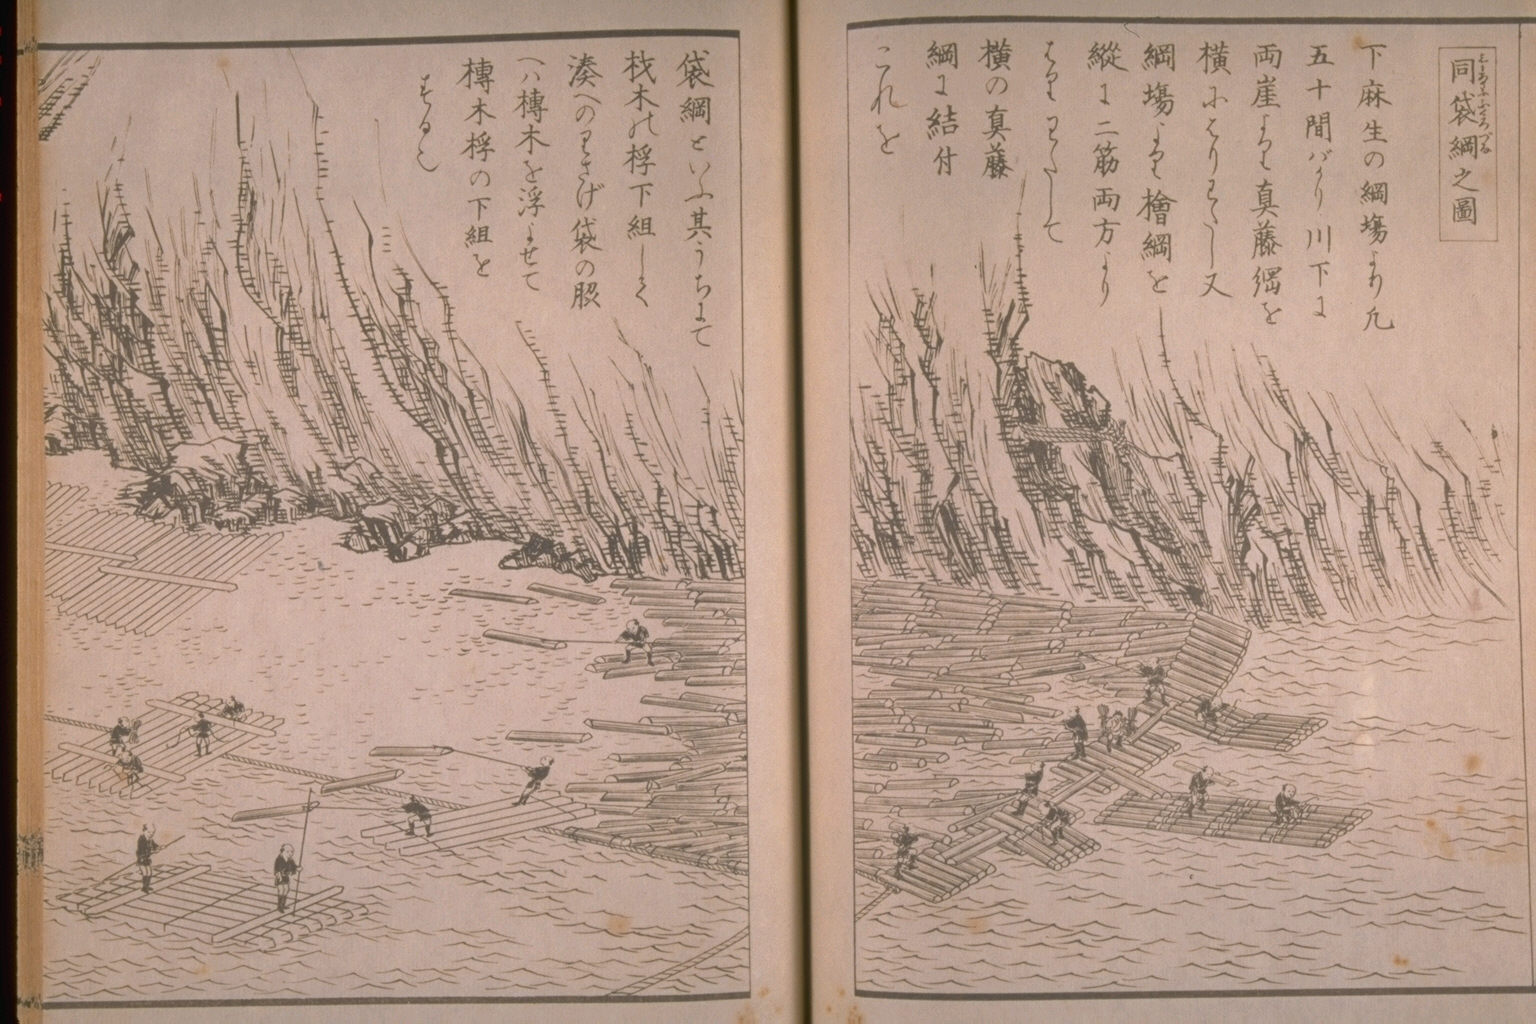 同袋綱之圖
下麻生の綱塲より凡
五十間バかり川下に
両崖より真藤綱を
横にはりわたし又
綱塲より檜綱を
縦に二筋両方より
はりわたして
横の真藤
綱に結付
これを
袋綱といふ其うちにて
栈木の桴下組しく
湊へのりさげ袋の脇
へハ榑木を浮よせて
榑木桴の下組を
するし